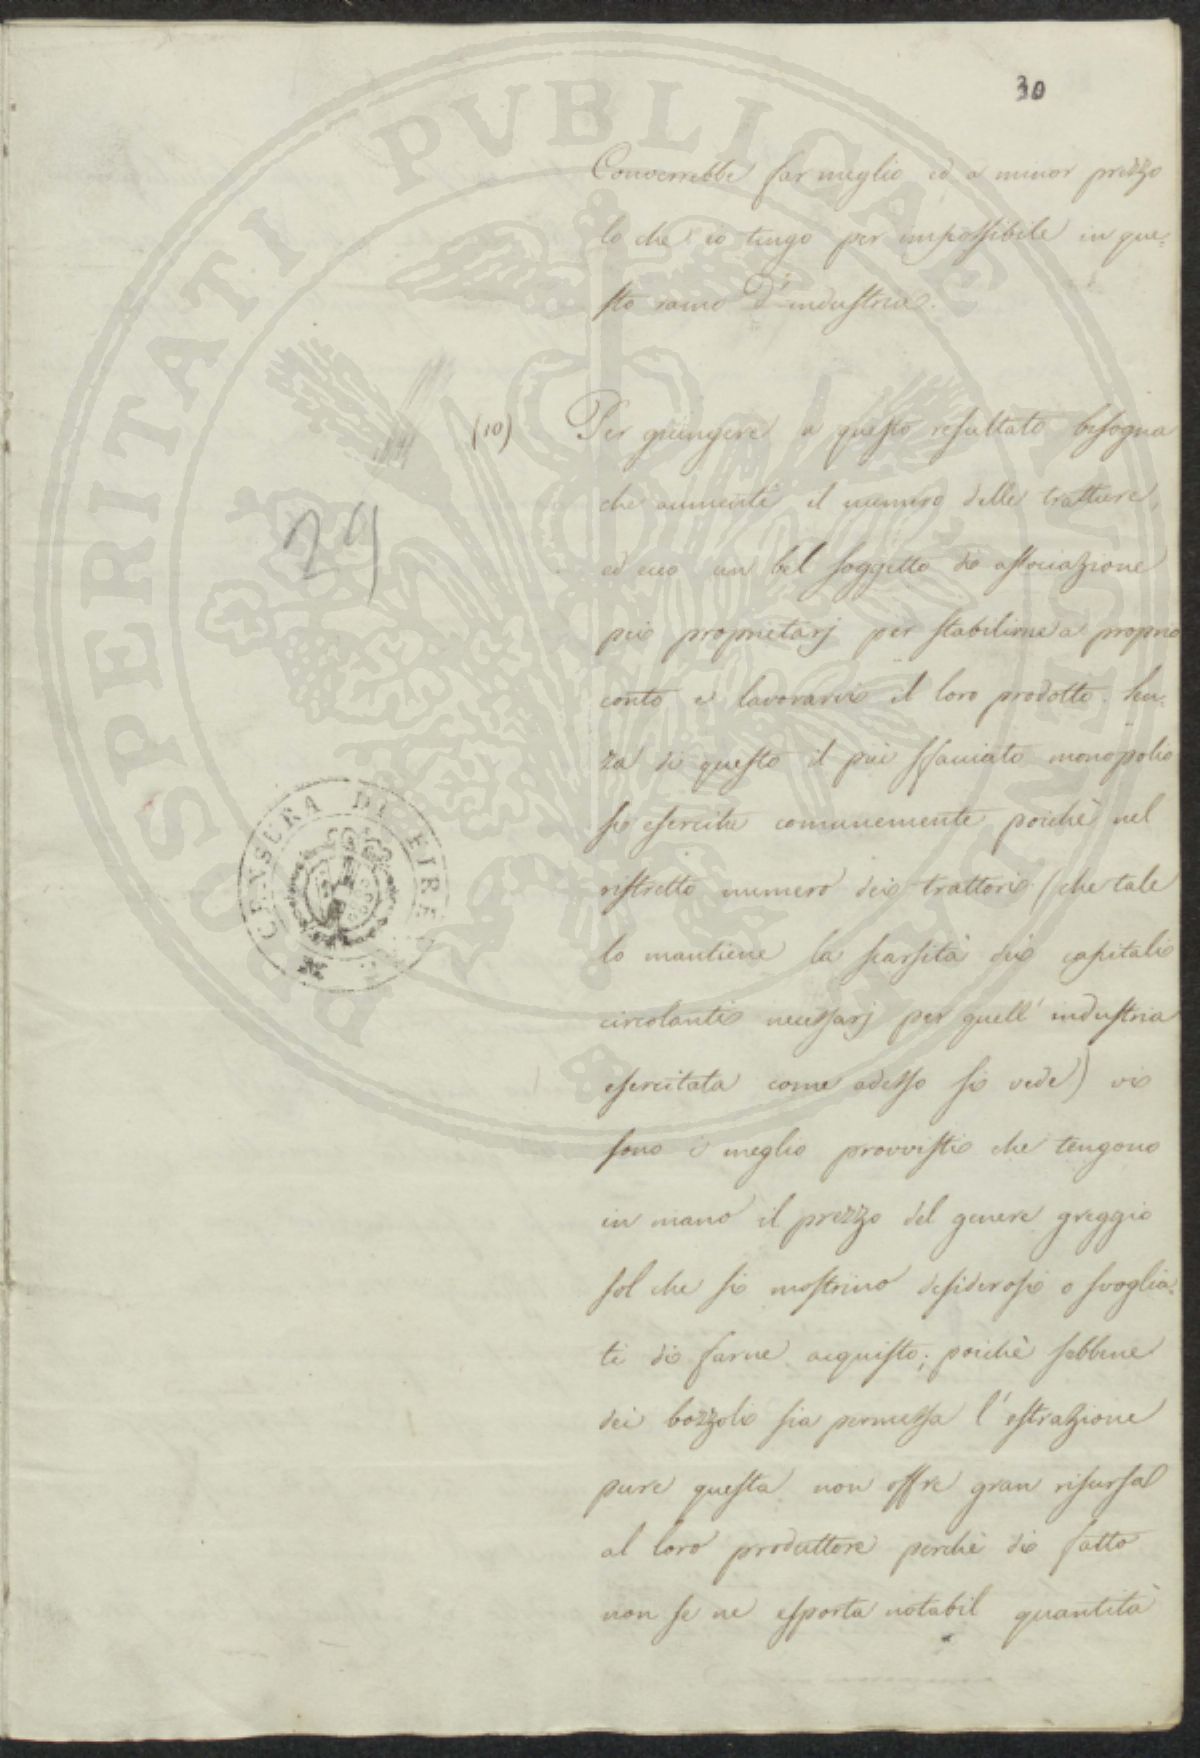 30
Converrebbe far meglio ed a minor prezzo
lo che io tengo per impossibile in que=
sto ramo d'industria.
(10) Per giungere a questo resultato bisogna
che aumenti il numero delle tratture,
ed ecco un bel soggetto di associazione
più proprietarj per stabilirne a proprio
conto e lavorarvi il loro prodotto. Sen=
za di questo il più sfacciato monopolio
si esercita comunemente poichè nel
ristretto numero dei trattori (che tale
lo mantiene la scarsità dei capitali
circolanti necessarj per quell'industria
esercitata come adesso si vede) vi
sono i meglio provvisti che tengono
in mano il prezzo del genere greggio
sol che si mostrino desiderosi o svoglia=
ti di farne acquisto; poichè sebbene
dei bozzoli sia permessa l'estrazione
pure questa non offre gran risursa
al loro produttore perchè di fatto
non se ne esporta notabil quantità
24
CENSURA DI FIRE
PROSPERITATI PVBLICAE AVGENDAE